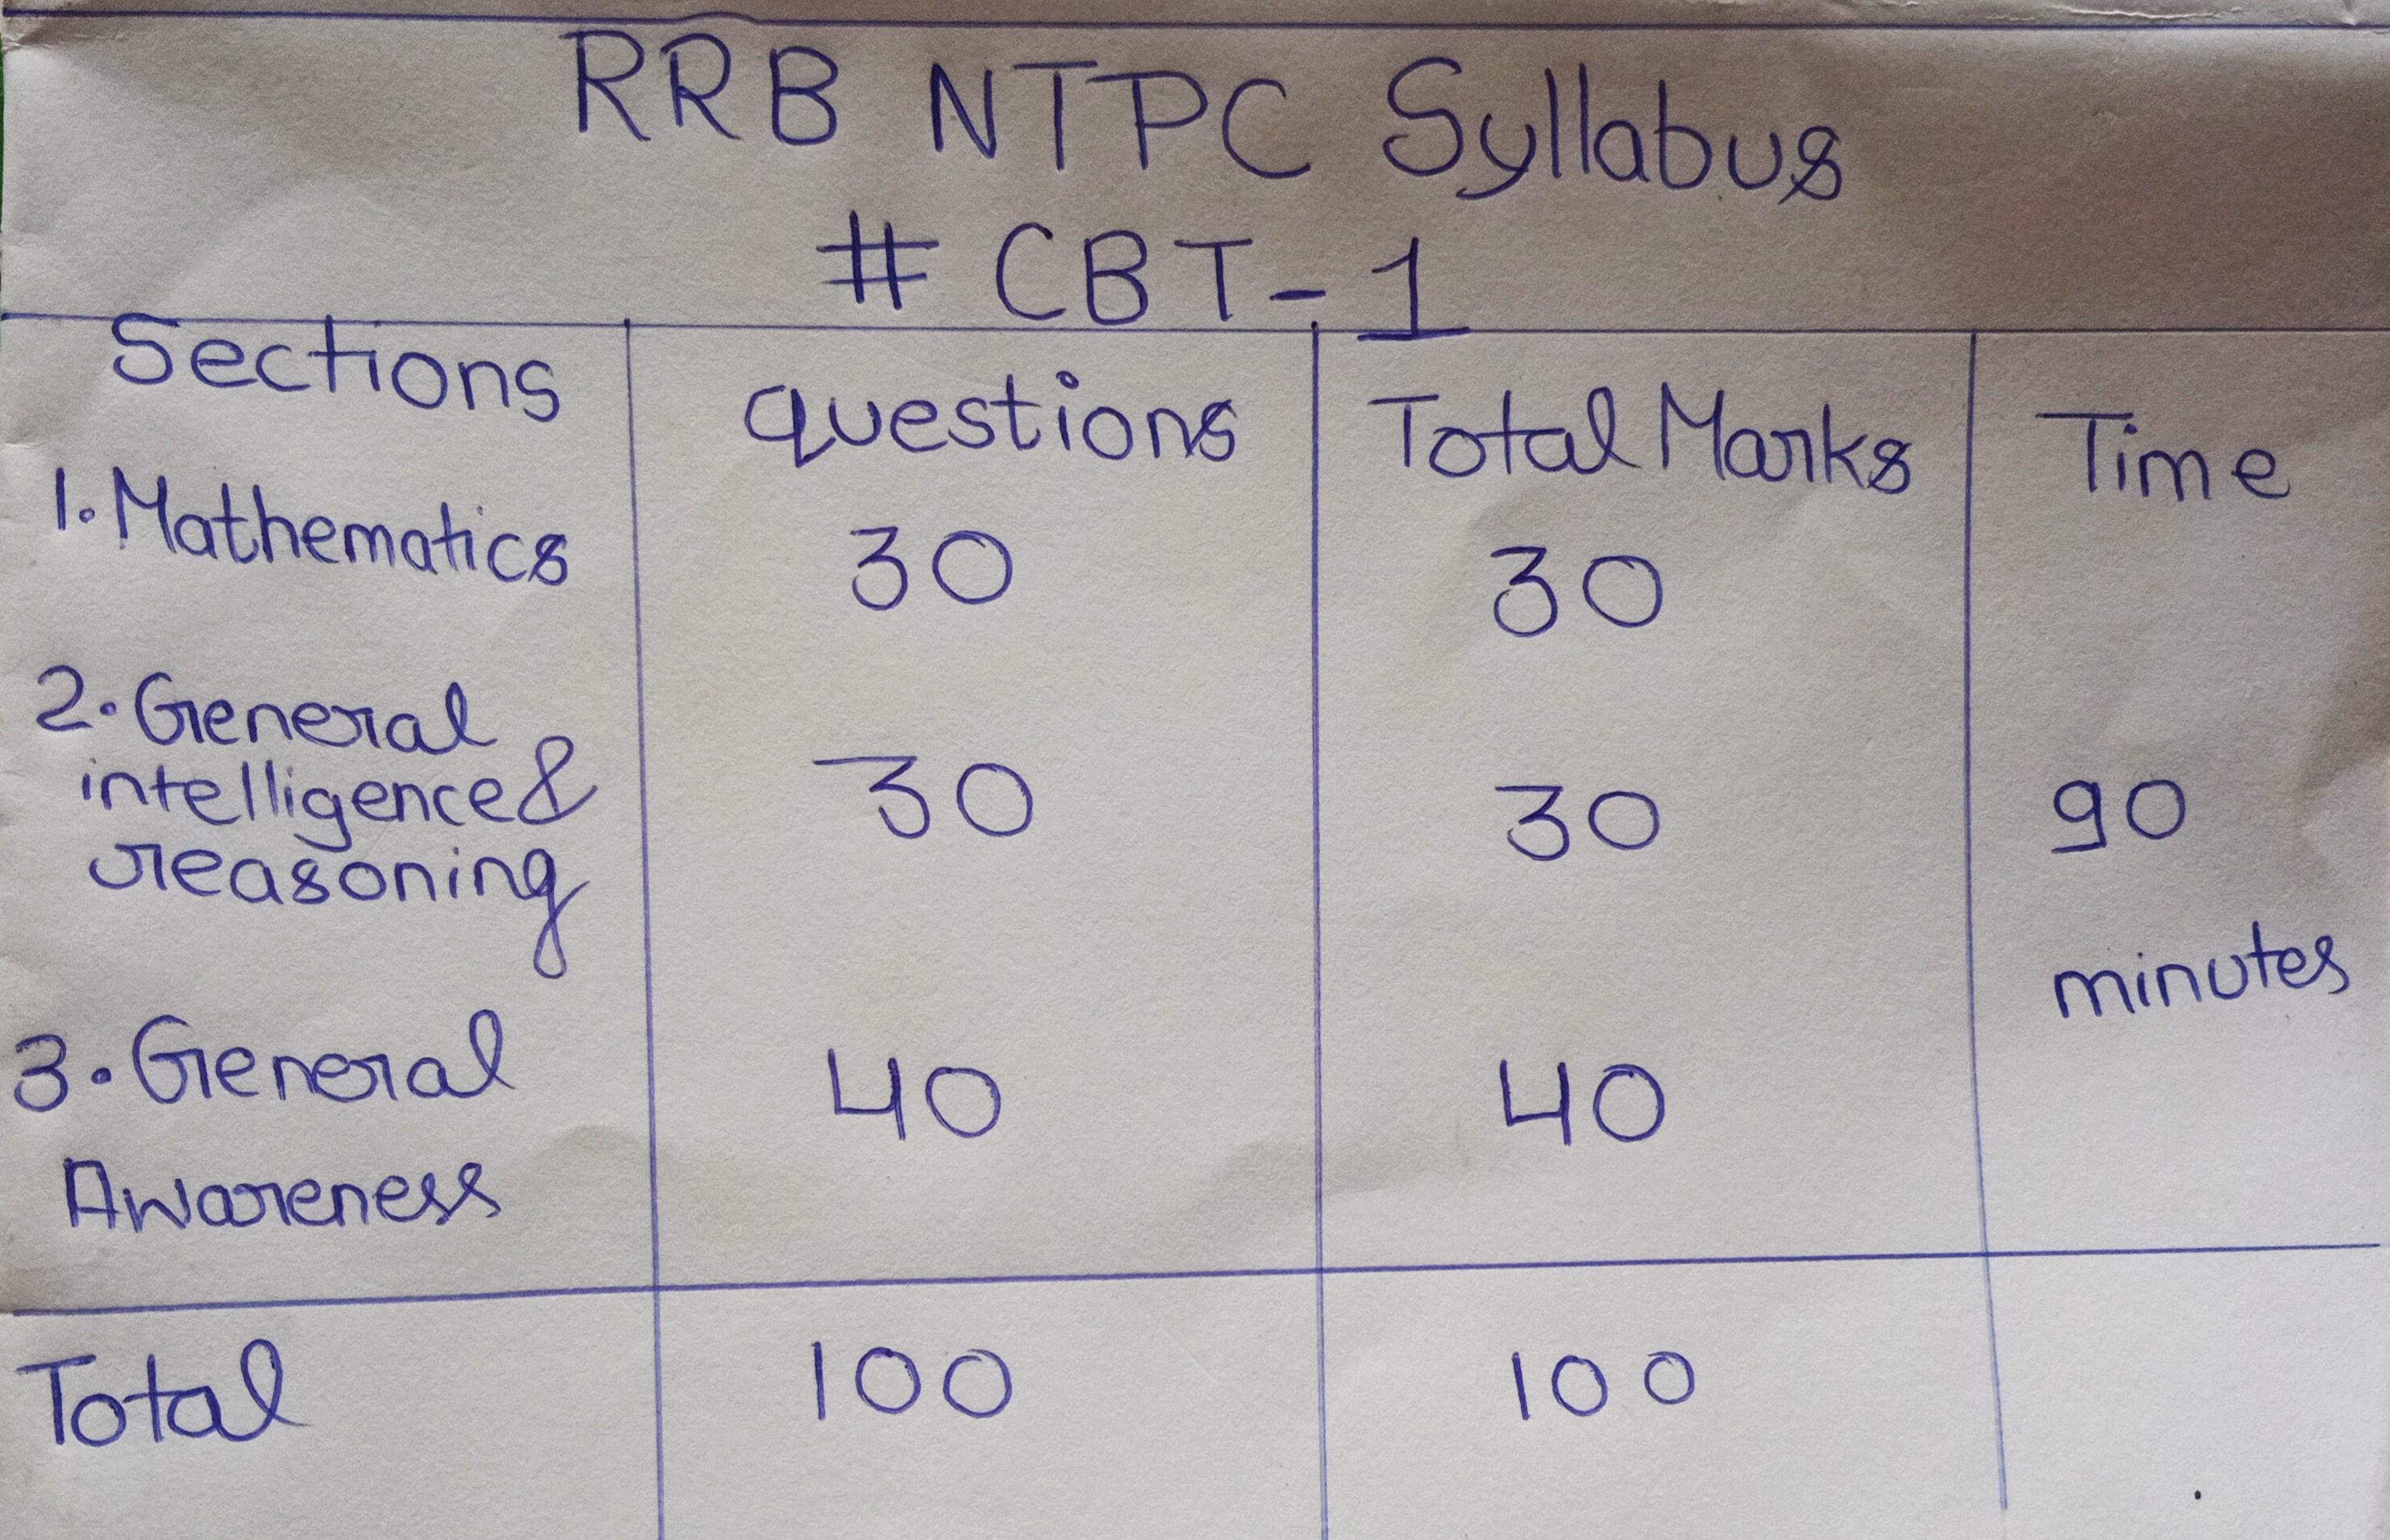 RRB NTPC Syllabus
# CBT-1
Sections questions Total Marks Time
1. Mathematics 30 30
2. General
intelligence &
reasoning 30 30 90
minutes
3. General 40 40
Awareness
Total 100 100